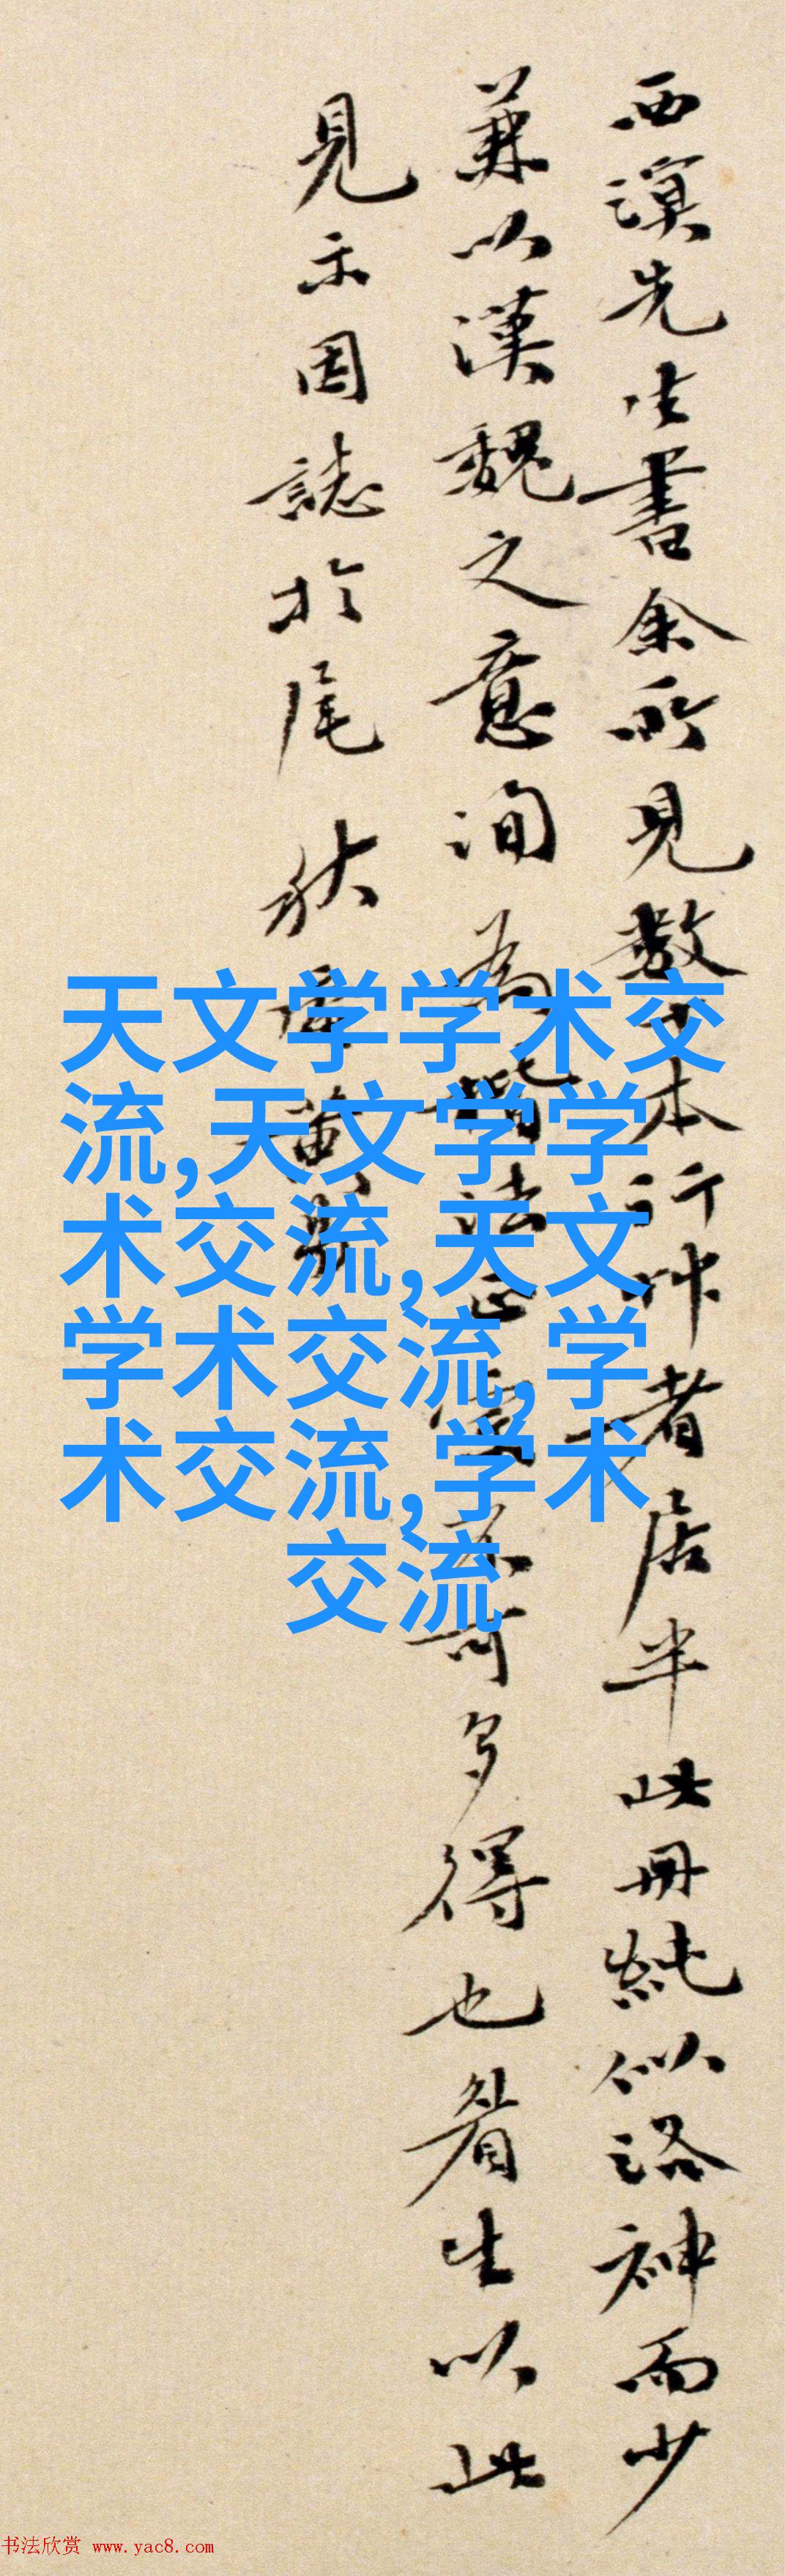 西溟先生書余所見數十本行草者居半此册純似洛神而少
兼以漢魏之意洵為楷法正宗不可多得也眉生以此
見示因誌於尾
天文学学术交
流,天文学学
术交流,天文
学术交流,学
术交流,学术
交流
书法欣赏 www.yac8.com